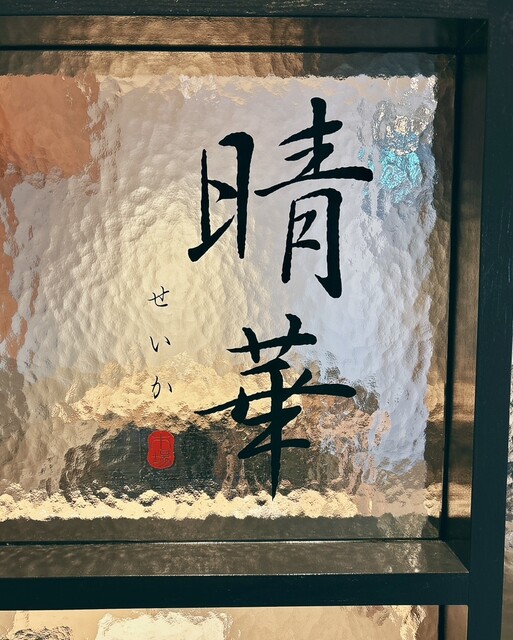 晴華
せいか